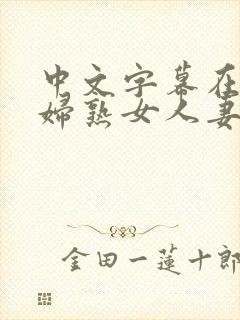 中文字幕在
婦熟女人妻
金田一蓮十郎